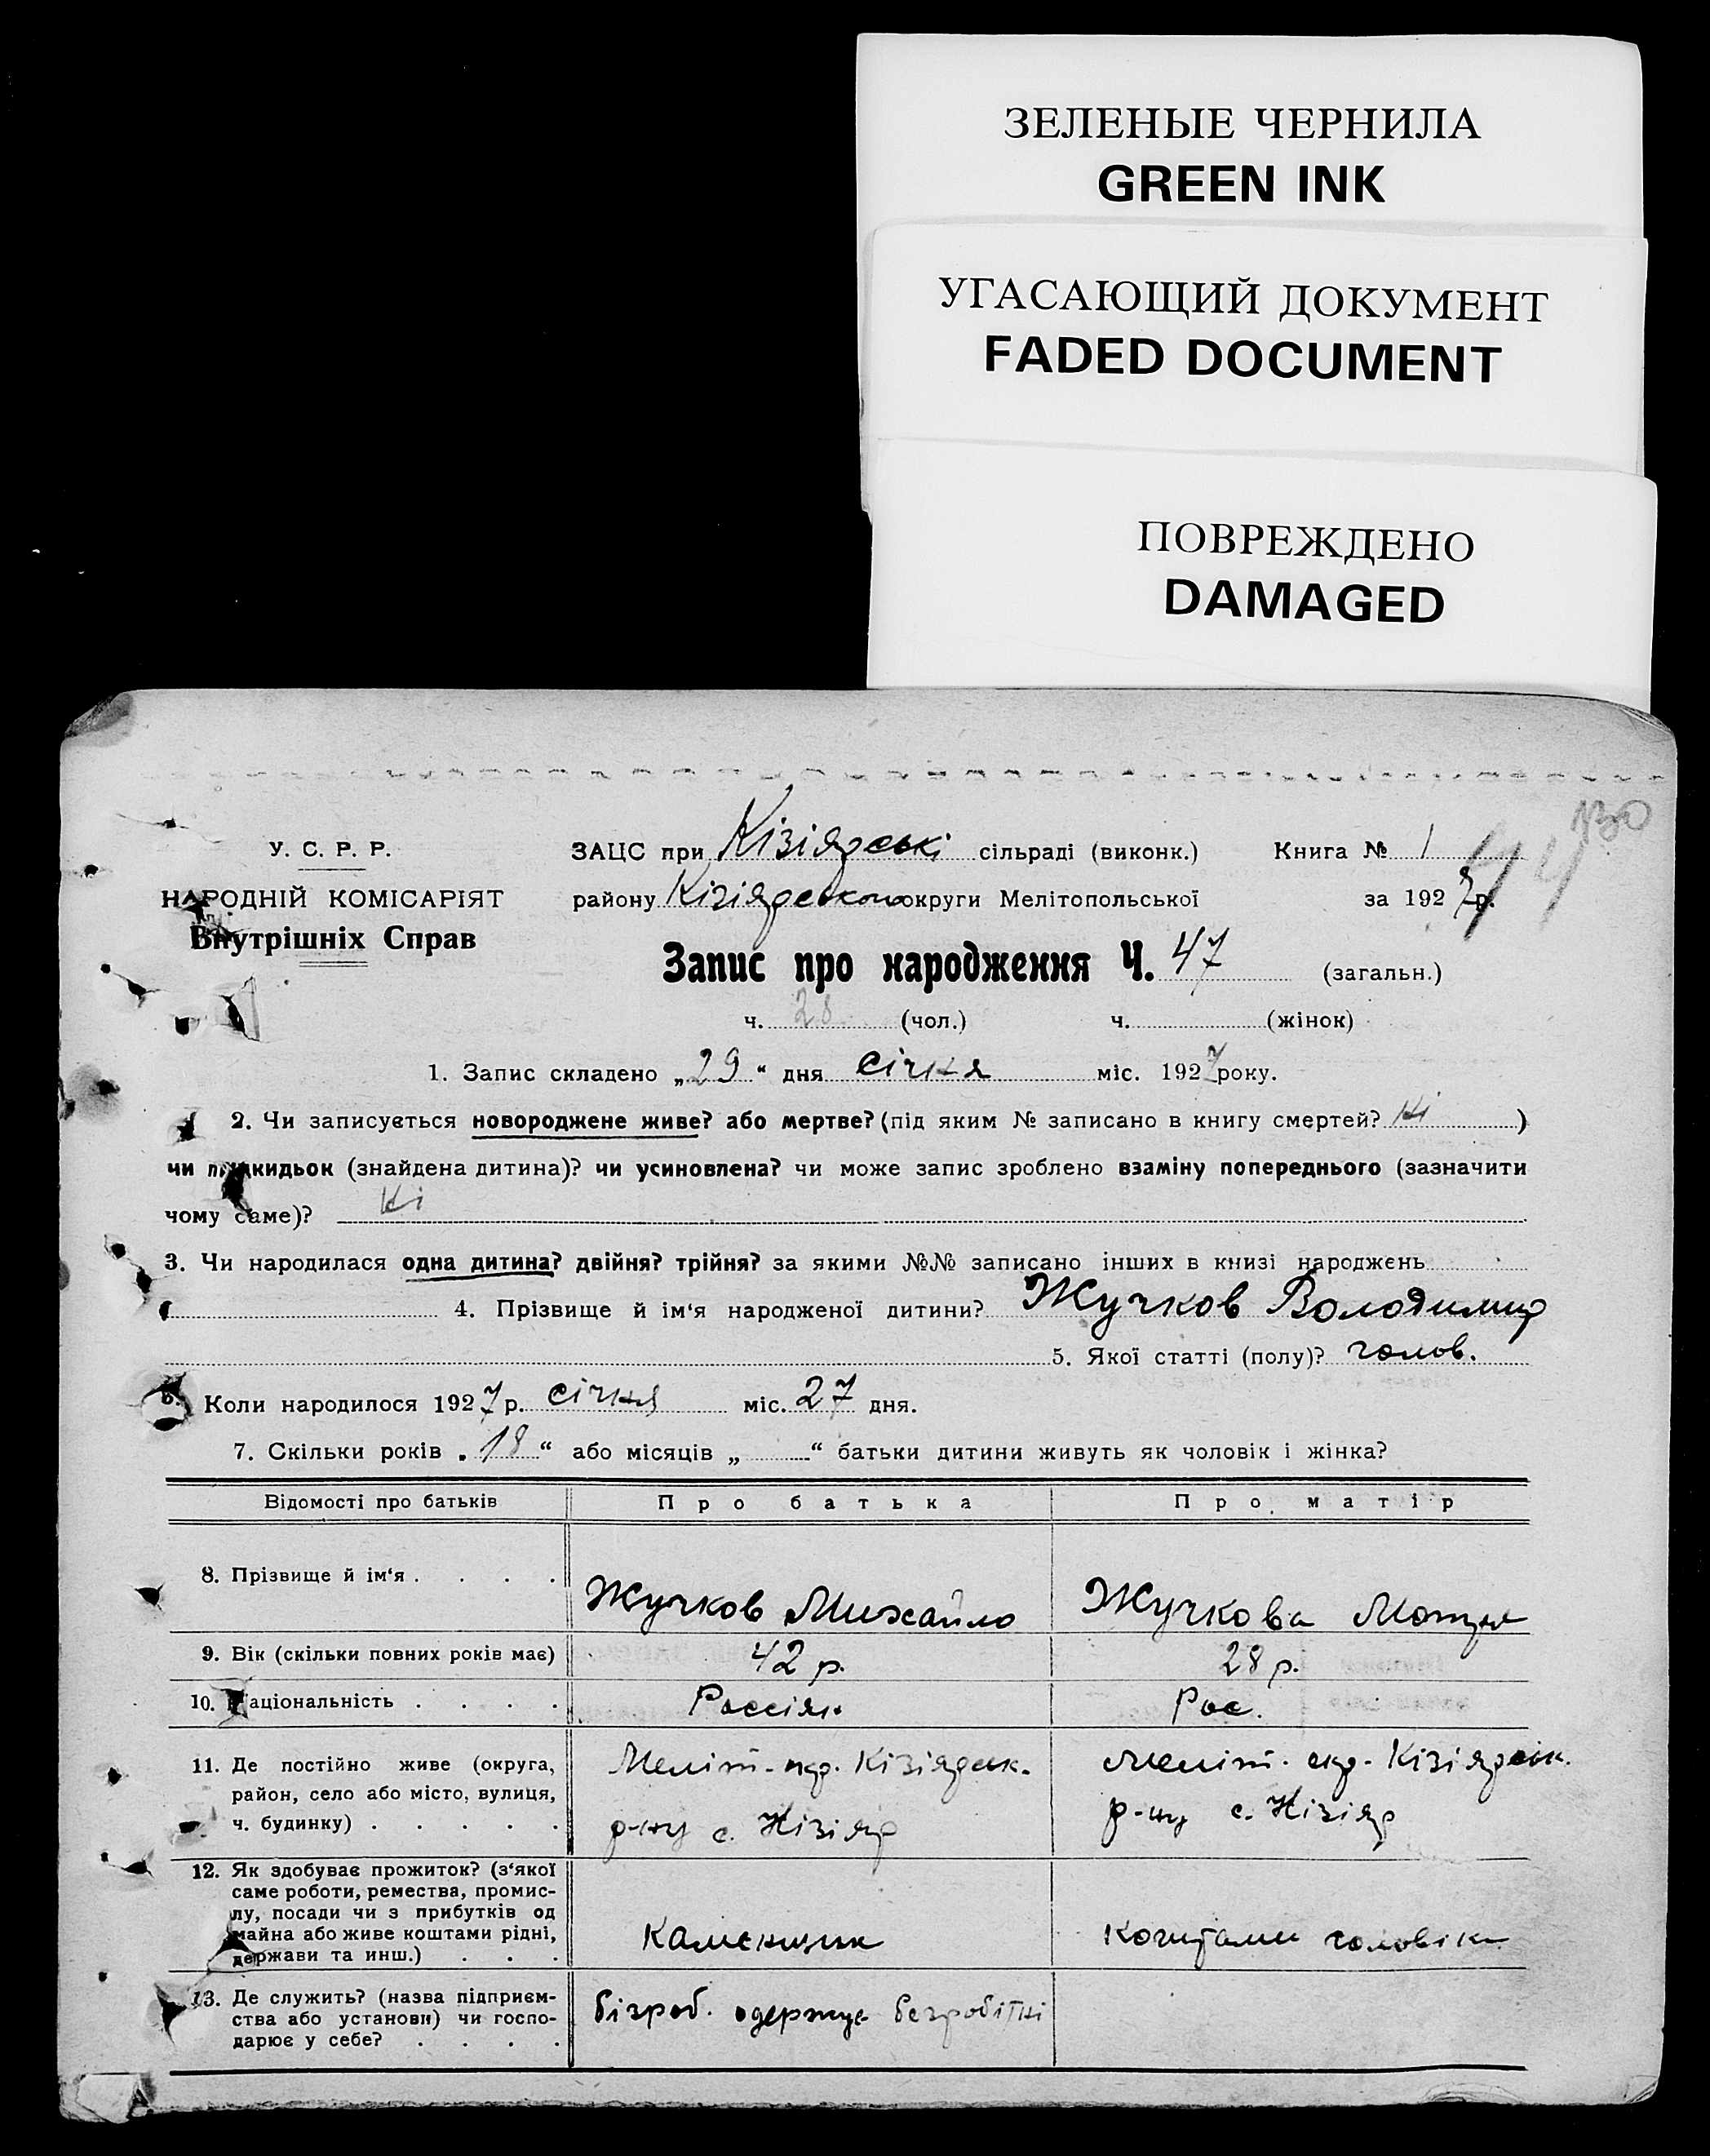 ЗЕЛЕНЫЕ ЧЕРНИЛА
GREEN INK
УГАСАЮЩИЙ ДОКУМЕНТ
FADED DOCUMENT
ПОВРЕЖДЕНО
DAMAGED
130
У. С. Р. Р.
НАРОДНІЙ КОМІСАРІЯТ
Внутрішніх Справ
ЗАЦС при Кізіярські сільраді (виконк.) Книга № 1
району Кізіярського округи Мелітопольської за 1927 р.
Запис про народження Ч. 47 (загальн.)
ч. 28 (чол.) ч. (жінок)
1. Запис складено „29“ дня січня міс. 1927 року.
2. Чи записується новороджене живе? або мертве? (під яким № записано в книгу смертей? Ні )
чи підкидьок (знайдена дитина)? чи усиновлена? чи може запис зроблено взаміну попереднього (зазначити
чому саме)? Ні
3. Чи народилася одна дитина? двійня? трійня? за якими №№ записано інших в книзі народжень
4. Прізвище й ім‘я народженої дитини? Жучков Володимир
5. Якої статті (полу)? чолов.
6. Коли народилося 1927 р. січня міс. 27 дня.
7. Скільки років „18“ або місяців „ “ батьки дитини живуть як чоловік і жінка?
Відомості про батьків Про батька Про матір
8. Прізвище й ім‘я . . . . Жучков Михайло Жучкова
9. Вік (скільки повних років має) 42 р. 28 р.
10. Національність . . . . Россіян Рос.
11. Де постійно живе (округа,
район, село або місто, вулиця,
ч. будинку) . . . . .
Меліт. окр. Кізіярськ.
р-ну с. Кізіяр
Меліт. окр. Кізіярськ.
р-ну с. Кізіяр
12. Як здобуває прожиток? (з‘якої
саме роботи, ремества, промис-
лу, посади чи з прибутків од
майна або живе коштами рідні,
держави та инш.) . . .
Каменщик
Коштами чоловіка
13. Де служить? (назва підприєм-
ства або установи) чи госпо-
дарює у себе? . . . .
безроб. одержує безробітні